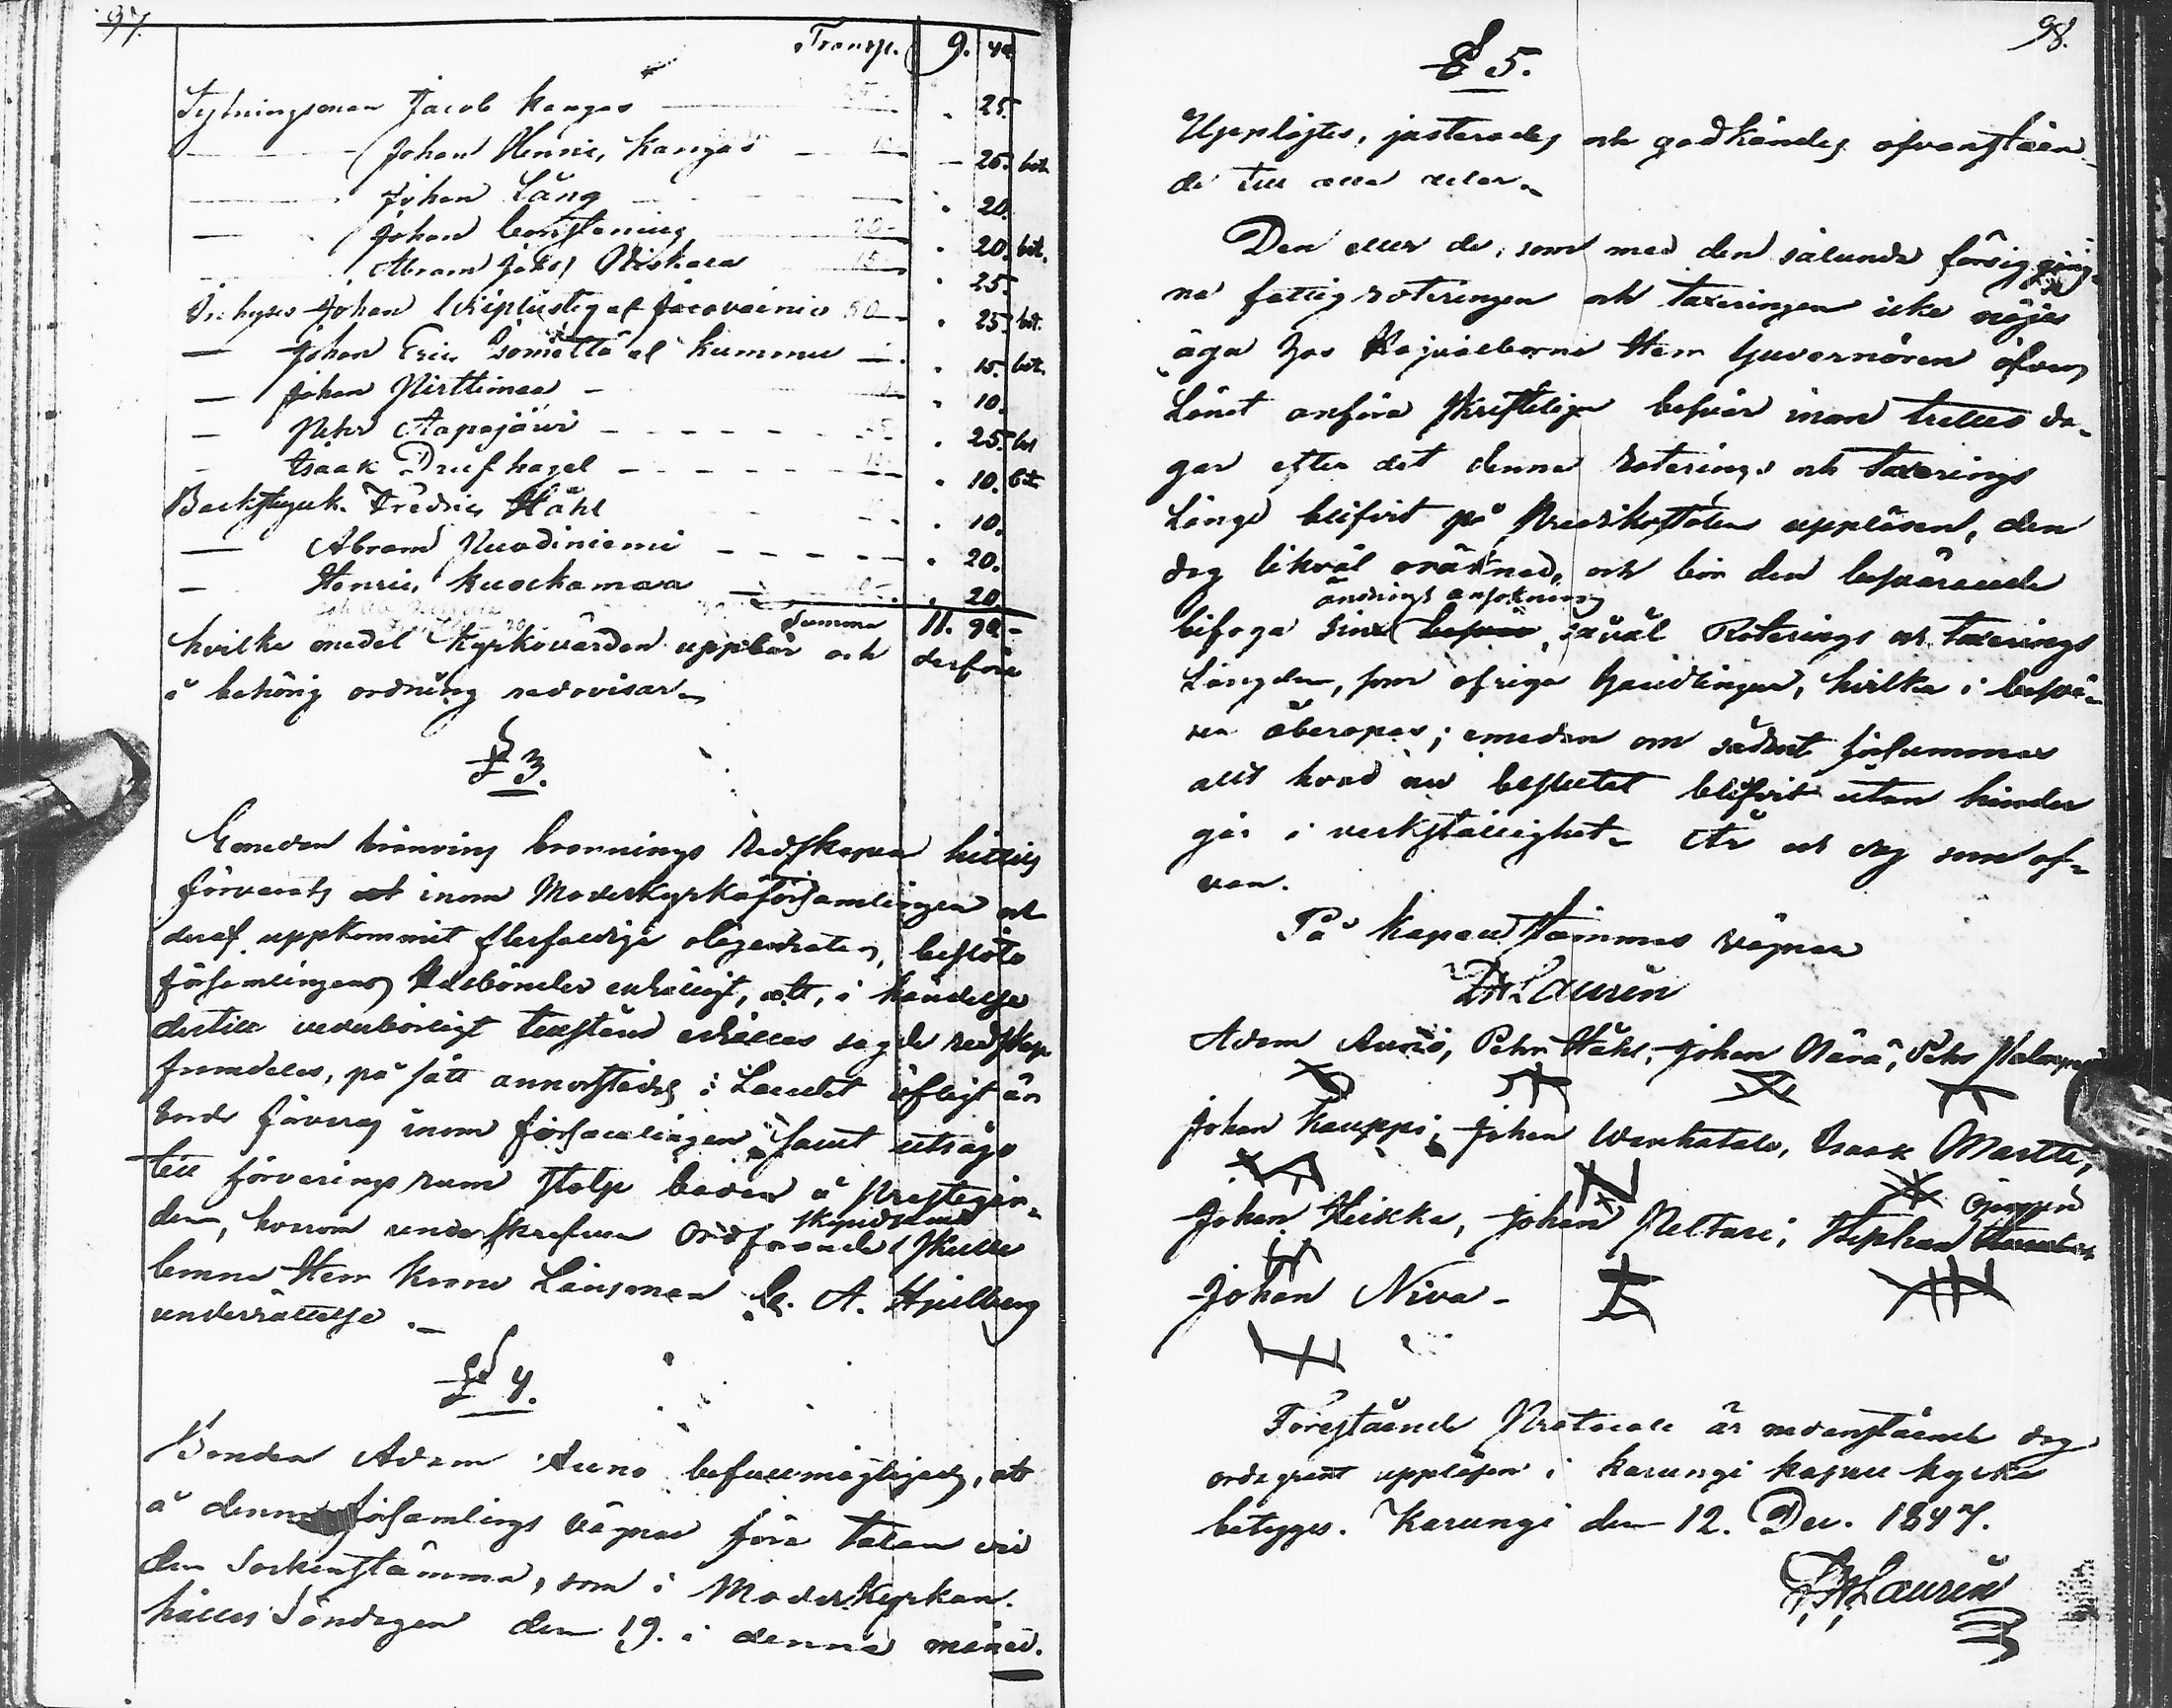 97.
Transp. 9. 40
Sytningsman Jacob Kangas 25.
Johan Henric Kangas 25. bet.
Johan Lång 20.
Johan 20. bet.
Abram Niskala 25.
Inhyses Johan af 25. bet.
Johan Eric af Kummu 15. bet.
Johan Pirttimaa 10.
Pehr Aapajärvi 25. bet
Isaak Drufhagel 10. bet
Backstuguk. Fredric Ståhl 10.
Abram Nuodiniemi 20.
Henric Kuockamaa 20.
Summa 11. 90
hvilka medel Kyrkovärden uppbär och derföre
i behörig ordning redovisar.
§ 3.
Emedan bränvins brännings Redskapen hittils
förvarats inom Moderkyrkoförsamlingen och
deraf uppkommit flerfaldiga olägenheter, beslöto
församlingens Husbönder enhälligt, att, i händelse
dertill vederbörligt tillstånd erhålles sagde redskap
framdeles, på sätt annorstädes i Landet öfligt är
borde förvaras inom församlingen, samt utsågo
till förvaringsrum stolpe boden å Prestegår-
den, hvarom underskrefven Ordförande skyndsamt skulle
lemna Herr Krono Länsman C. A. Hjelberg
underrättelse.
§ 4.
Bonden Adam Auno befullmägtigades, att
å denna församlings vägnar föra talan vid
den Sockenstämma, som i Moderkyrkan
hålles Söndagen den 19. i denna månad.
98.
§ 5.
Upplästes, justerades och godkändes ofvanståen-
de till alla delar.
Den eller de, som med den sålunda försiggång-
na fattigroteringen och taxeringen icke nöjes
äga hos Högvälborne Herr Guvernören öfver
Länet anföra skriftliga besvär inom trettio da-
gar efter det denna Roterings och Taxerings
Längd blifvit på Predikostolen uppläsen, den
dag likväl oräknad, och bör den besvärande
ändrings ansökning
bifoga sina besvär, såväl Roterings och taxerings
Längden, som öfriga handlingar, hvilka i besvä-
ren åberopas; emedan om sådant försummas
allt hvad nu beslutet blifvit utan hinder
går i verkställighet. År och dag som of-
van.
På Kapellstämmans vägnar
Laurin
Adam Auno, Pehr Ståhl, Johan Närä, Pehr
Johan Kauppi, Johan Wanhatalo, Isaak Martti,
Johan Heikka, Johan Peltari, Stephan
Johan Niva.
Förestående Protocoll är nedanstående dag
ordagrant uppläsen i Karungi kapell kyrka
betygges. Karungi den 12. Dec. 1847.
Laurin